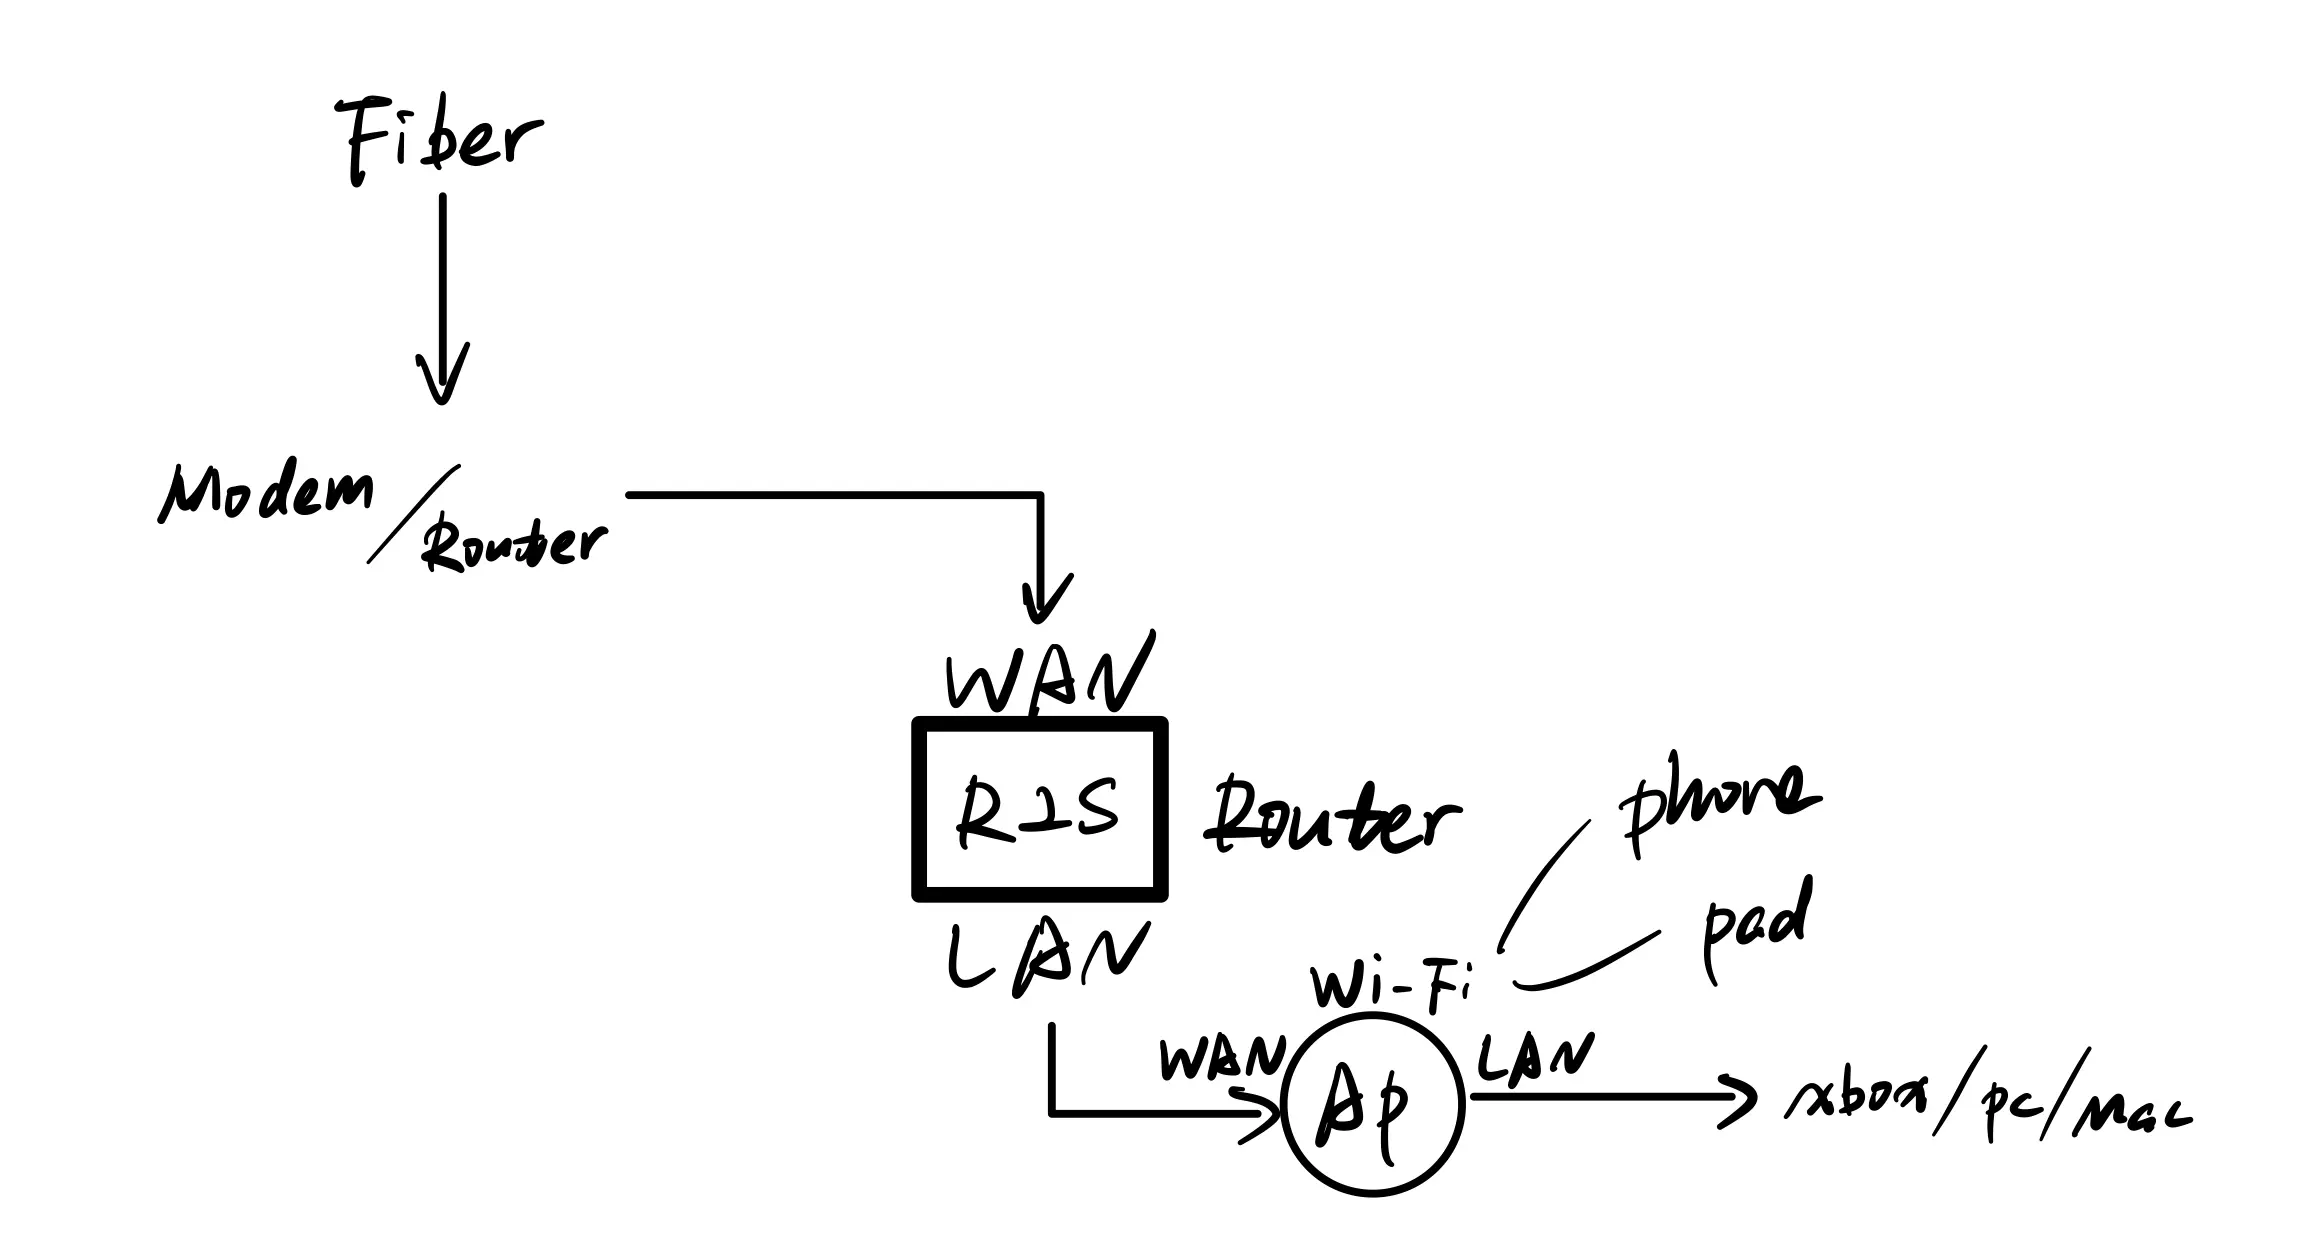 Fiber
Modem / Router
WAN
R2S
Router
LAN
phone
pad
Wi-Fi
WAN
AP
LAN
xbox/pc/Mac